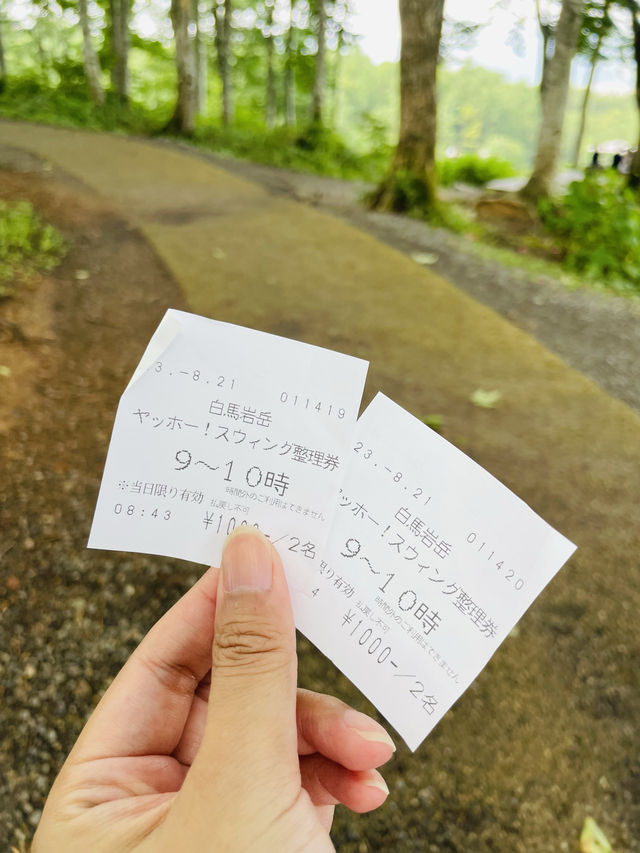 3.-8.21 011419
白馬岩岳
ヤッホー!スウィング整理券
9〜10時
時間外のご利用はできません
※当日限り有効 払戻し不可
08:43 ¥1000-/2名
23.-8.21 011420
白馬岩岳
ッホー!スウィング整理券
9〜10時
時間外のご利用はできません
限り有効 払戻し不可
4 ¥1000-/2名